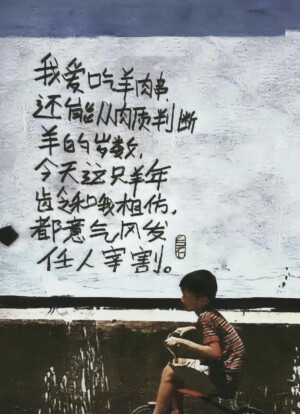 我爱吃羊肉串
还能从肉质判断
羊的岁数,
今天这只羊年
齿令和我相仿,
都意气风发
任人宰割。